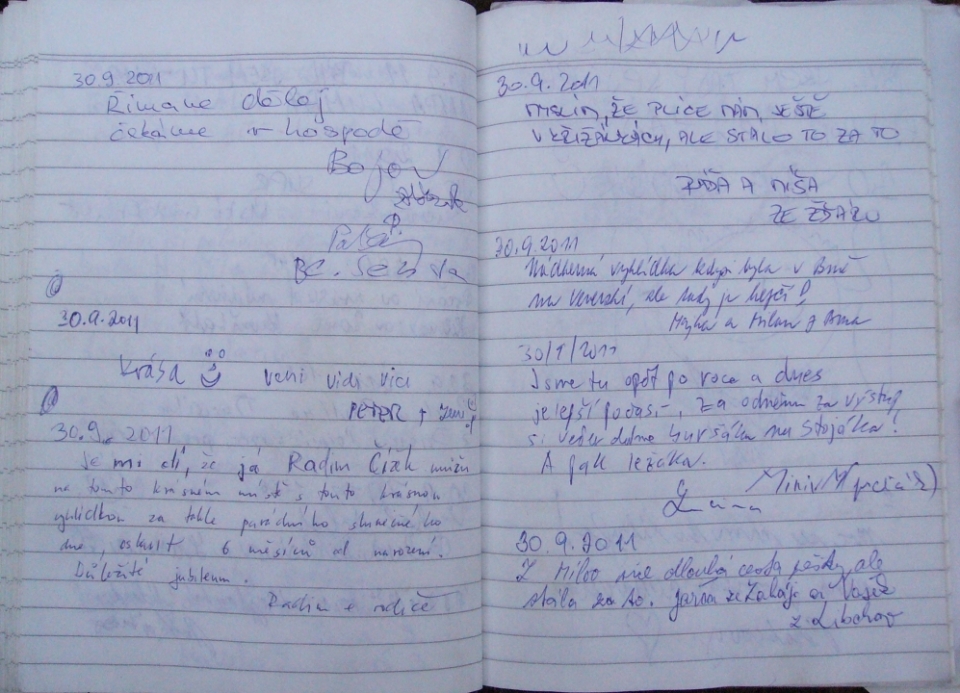 30.9 2011
Římane dolej
čekáme v hospodě
Bojov
P.
Bc.
30.9.2011
Krása veni vidi vici
PETER +
30.9. 2011
Je mi ctí, že já Radim Čížek můžu
na tomto krásném místě s touto krásnou
vyhlídkou za takle parádního slunečného
dne, oslavit 6 měsíců od narození.
Důležité jubileum.
Radim + rodiče
30.9.2011
MYSLÍM, ŽE PLÍCE MÁM JEŠTĚ
V KŘIŽÁNKÁCH, ALE STÁLO TO ZA TO
A MÍŠA
ZE ŽĎÁRU
30.9.2011
Nádherná vyhlídka kdysi byla v Brně
na Veveří, ale tady je hezčí!
a Milan z Brna
30/9/2011
Jsme tu opět po roce a dnes
je lepší počasí, za odměnu za výstup
si večer dáme Gursáka na stojáka!
A pak ležáka.
30.9.2011
Z dlouhá cesta pěšky ale
stála za to. Jarda ze a Vašek
z